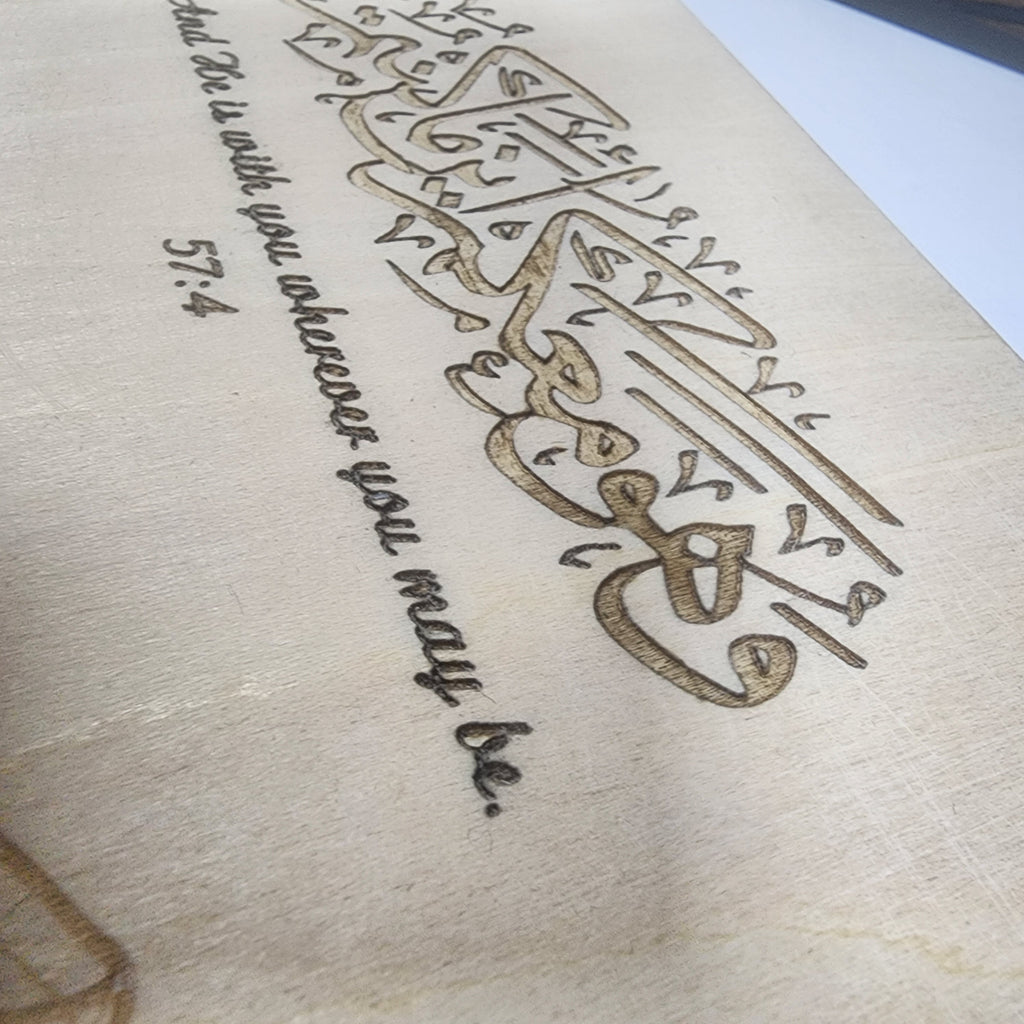 وهو معكم أين ما كنتم
And He is with you wherever you may be.
57:4